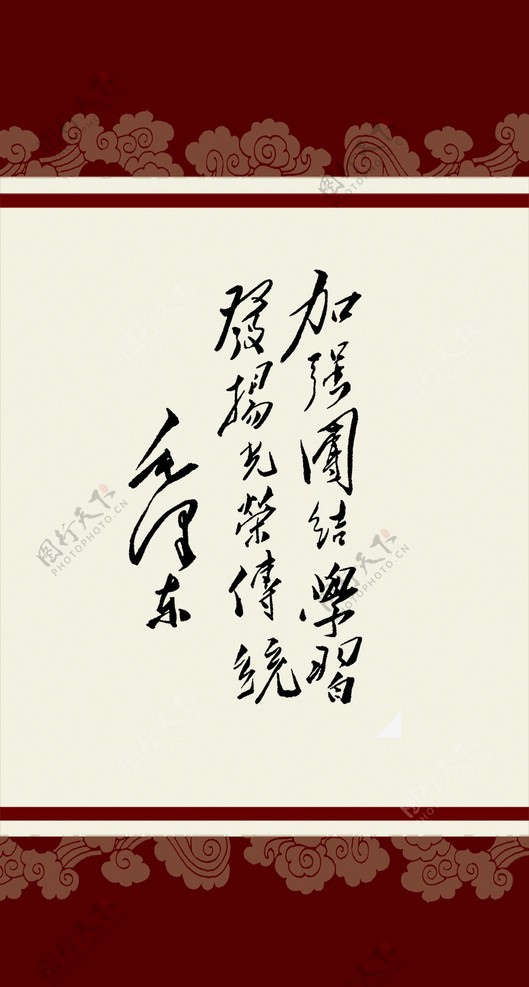 加强團结學習
發揚光榮傳統
毛澤东
图行天下
PHOTOPHOTO.CN